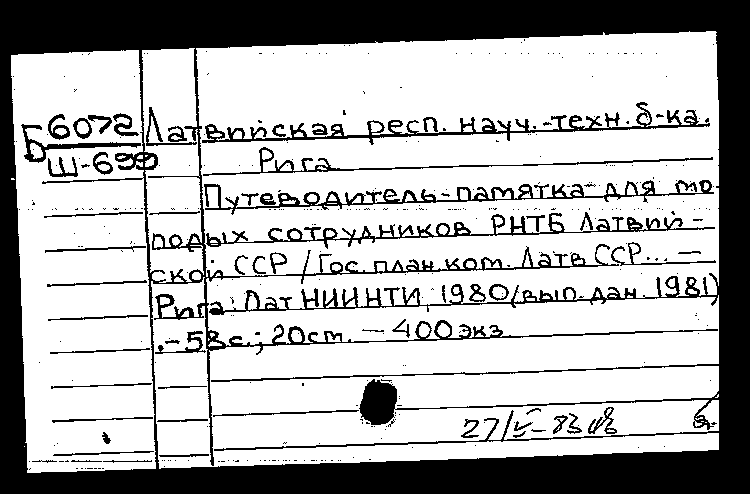 Б 6072 Латвийская респ. науч.-техн. б-ка.
Ш-699 Рига
Путеводитель-памятка для мо-
лодых сотрудников РНТБ Латвий-
ской ССР / Гос. план. ком. Латв ССР... —
Рига: Лат НИИНТИ, 1980 (вып. дан. 1981)
.- 58 с.; 20 ст. — 400 экз
27/V-83